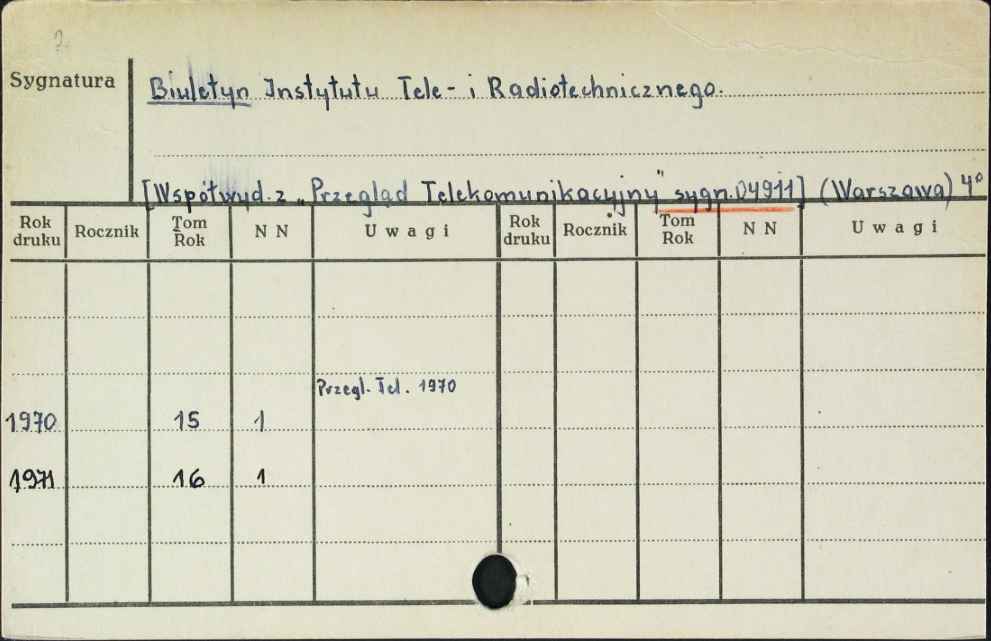 ?
Sygnatura
Biuletyn Instytutu Tele- i Radiotechnicznego.
[Współwyd. z „Przegląd Telekomunikacyjny" sygn. 04911] (Warszawa) 4°
Rok druku Rocznik Tom Rok N N Uwagi Rok druku Rocznik Tom Rok N N Uwagi
Przegl. Tel. 1970
1970 15 1
1971 16 1